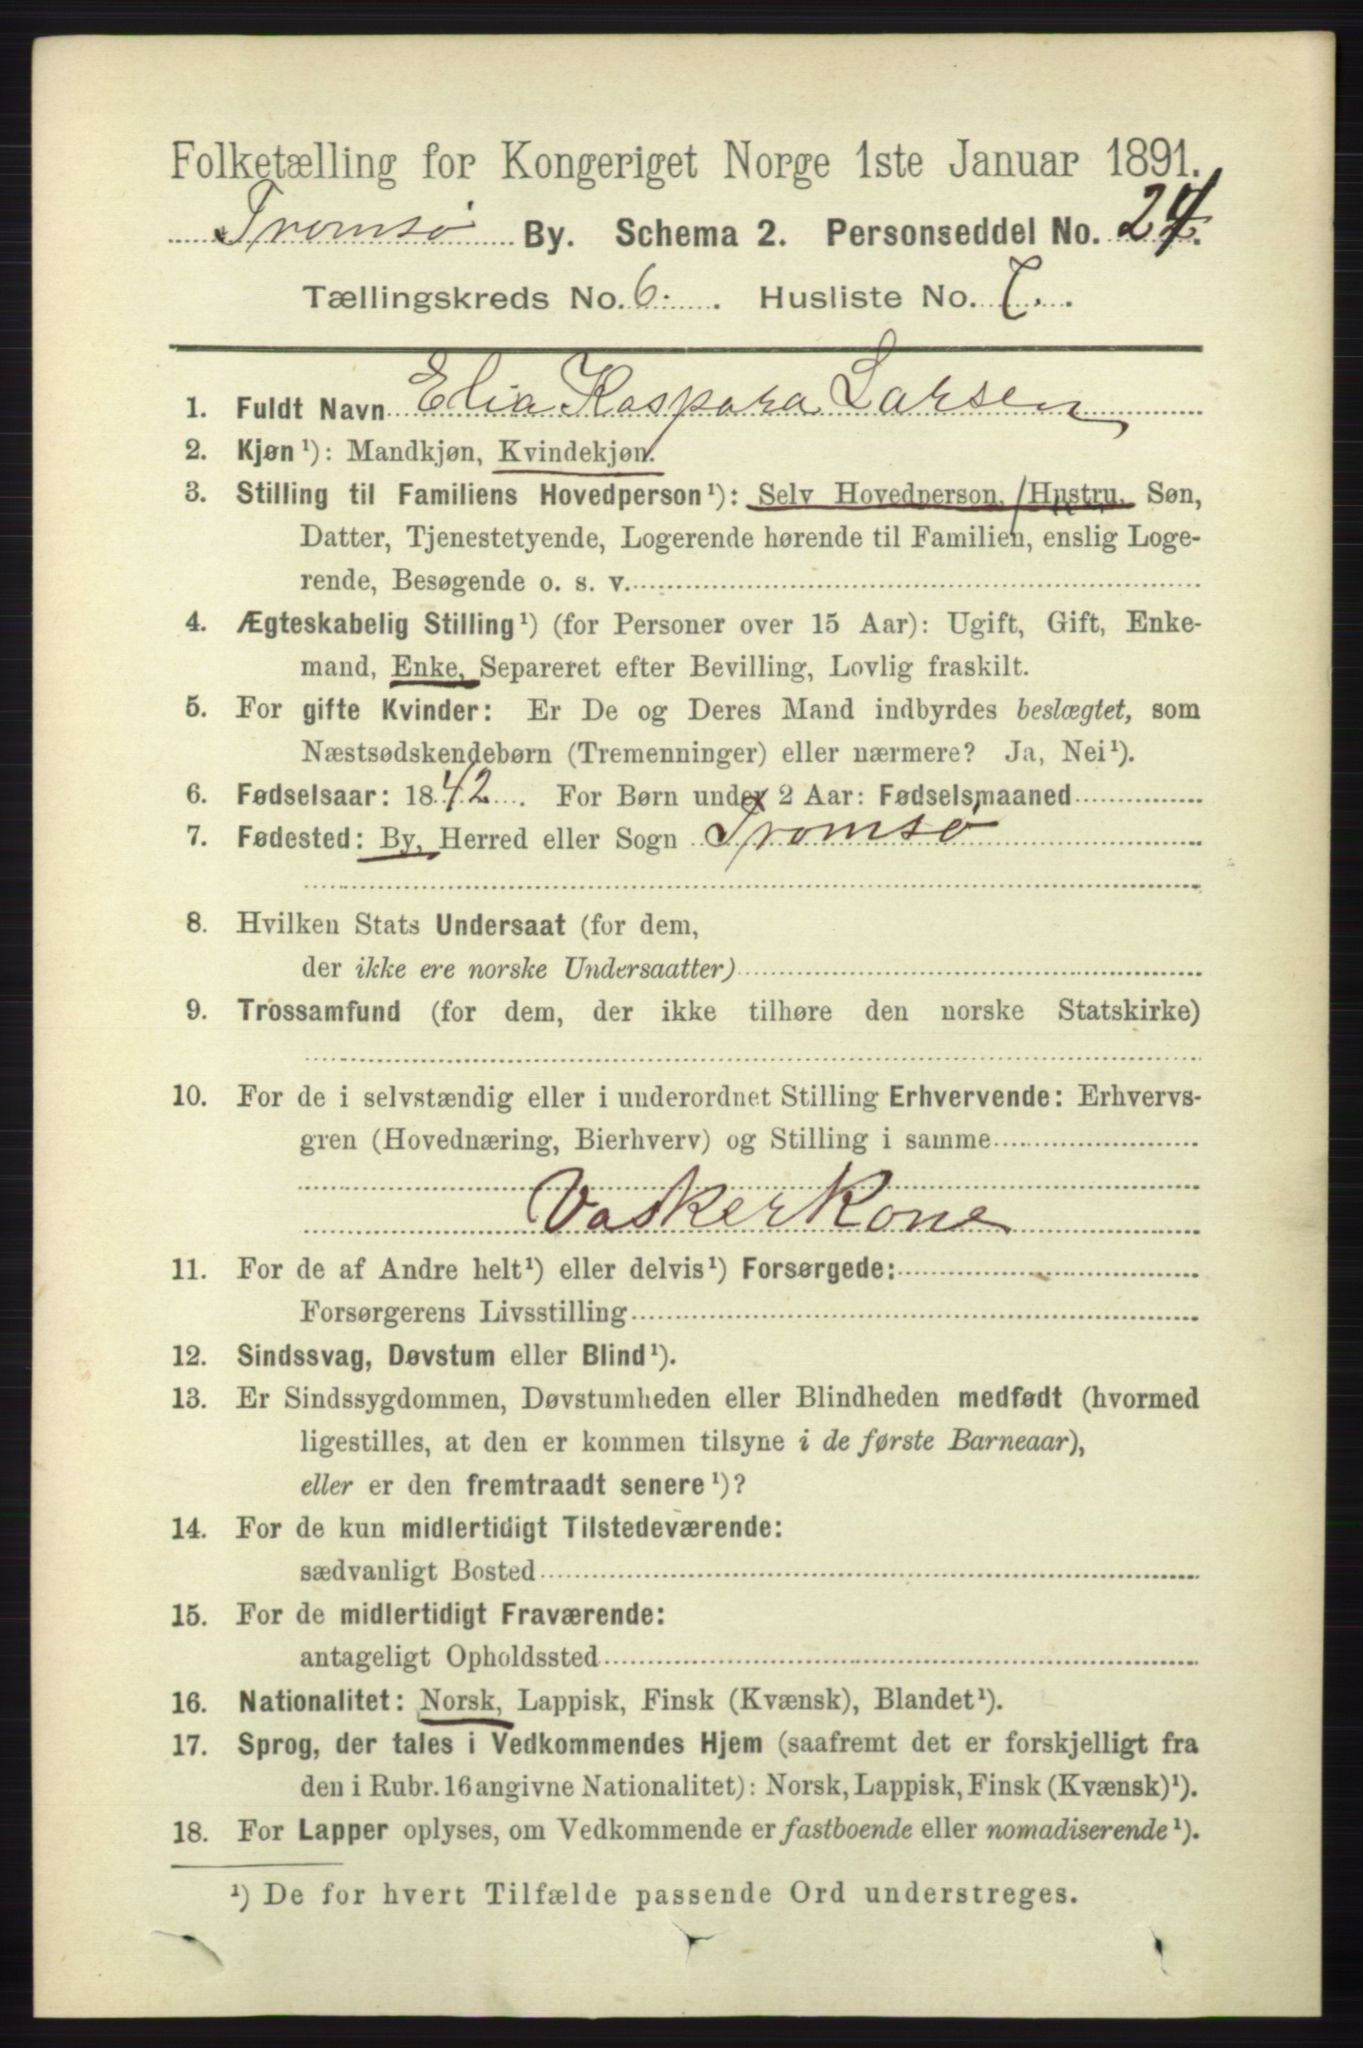 Folketælling for Kongeriget Norge 1ste Januar 1891.
Tromsø By. Schema 2. Personseddel No. 24.
Tællingskreds No. 6. Husliste No. 7.
1. Fuldt Navn Elia Kaspara Larsen
2. Kjøn ¹): Mandkjøn, Kvindekjøn.
3. Stilling til Familiens Hovedperson ¹): Selv Hovedperson, Hustru, Søn,
Datter, Tjenestetyende, Logerende hørende til Familien, enslig Loge-
rende, Besøgende o. s. v.
4. Ægteskabelig Stilling ¹) (for Personer over 15 Aar): Ugift, Gift, Enke-
mand, Enke, Separeret efter Bevilling, Lovlig fraskilt.
5. For gifte Kvinder: Er De og Deres Mand indbyrdes beslægtet, som
Næstsødskendebørn (Tremenninger) eller nærmere? Ja, Nei ¹).
6. Fødselsaar: 1842. For Børn under 2 Aar: Fødselsmaaned
7. Fødested: By, Herred eller Sogn Tromsø
8. Hvilken Stats Undersaat (for dem,
der ikke ere norske Undersaatter)
9. Trossamfund (for dem, der ikke tilhøre den norske Statskirke)
10. For de i selvstændig eller i underordnet Stilling Erhvervende: Erhvervs-
gren (Hovednæring, Bierhverv) og Stilling i samme
Vaskerkone
11. For de af Andre helt ¹) eller delvis ¹) Forsørgede:
Forsørgerens Livsstilling
12. Sindssvag, Døvstum eller Blind ¹).
13. Er Sindssygdommen, Døvstumheden eller Blindheden medfødt (hvormed
ligestilles, at den er kommen tilsyne i de første Barneaar),
eller er den fremtraadt senere ¹)?
14. For de kun midlertidigt Tilstedeværende:
sædvanligt Bosted
15. For de midlertidigt Fraværende:
antageligt Opholdssted
16. Nationalitet: Norsk, Lappisk, Finsk (Kvænsk), Blandet ¹).
17. Sprog, der tales i Vedkommendes Hjem (saafremt det er forskjelligt fra
den i Rubr. 16 angivne Nationalitet): Norsk, Lappisk, Finsk (Kvænsk) ¹).
18. For Lapper oplyses, om Vedkommende er fastboende eller nomadiserende ¹).
¹) De for hvert Tilfælde passende Ord understreges.